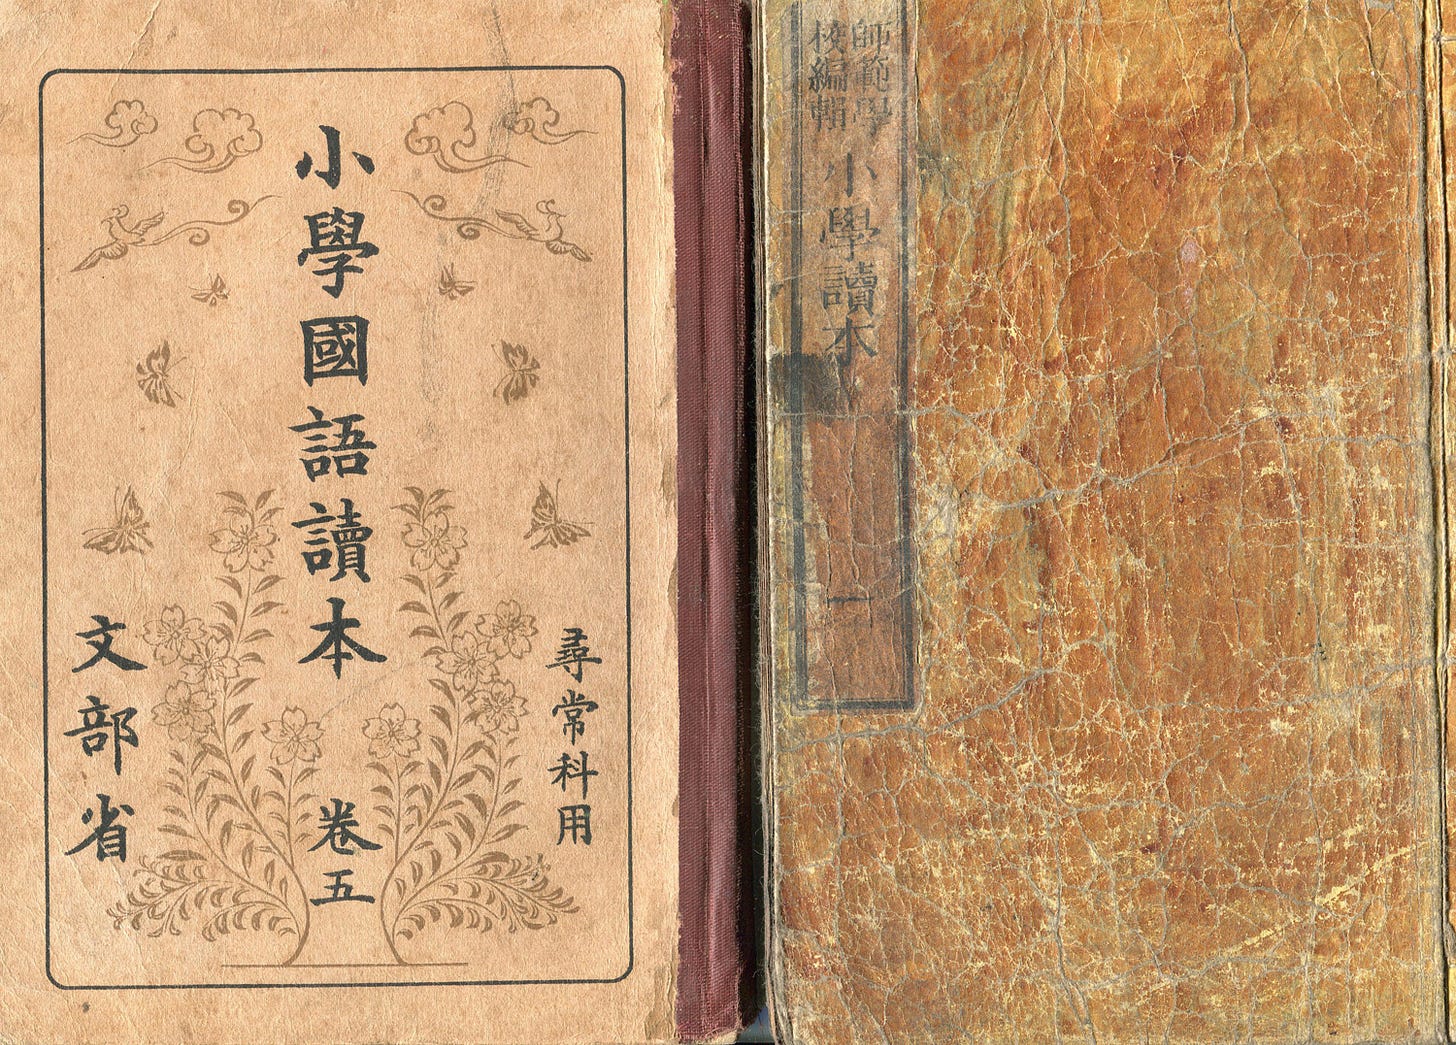 小學國語讀本
卷五
尋常科用
文部省
師範學
校編輯
小學讀本
一